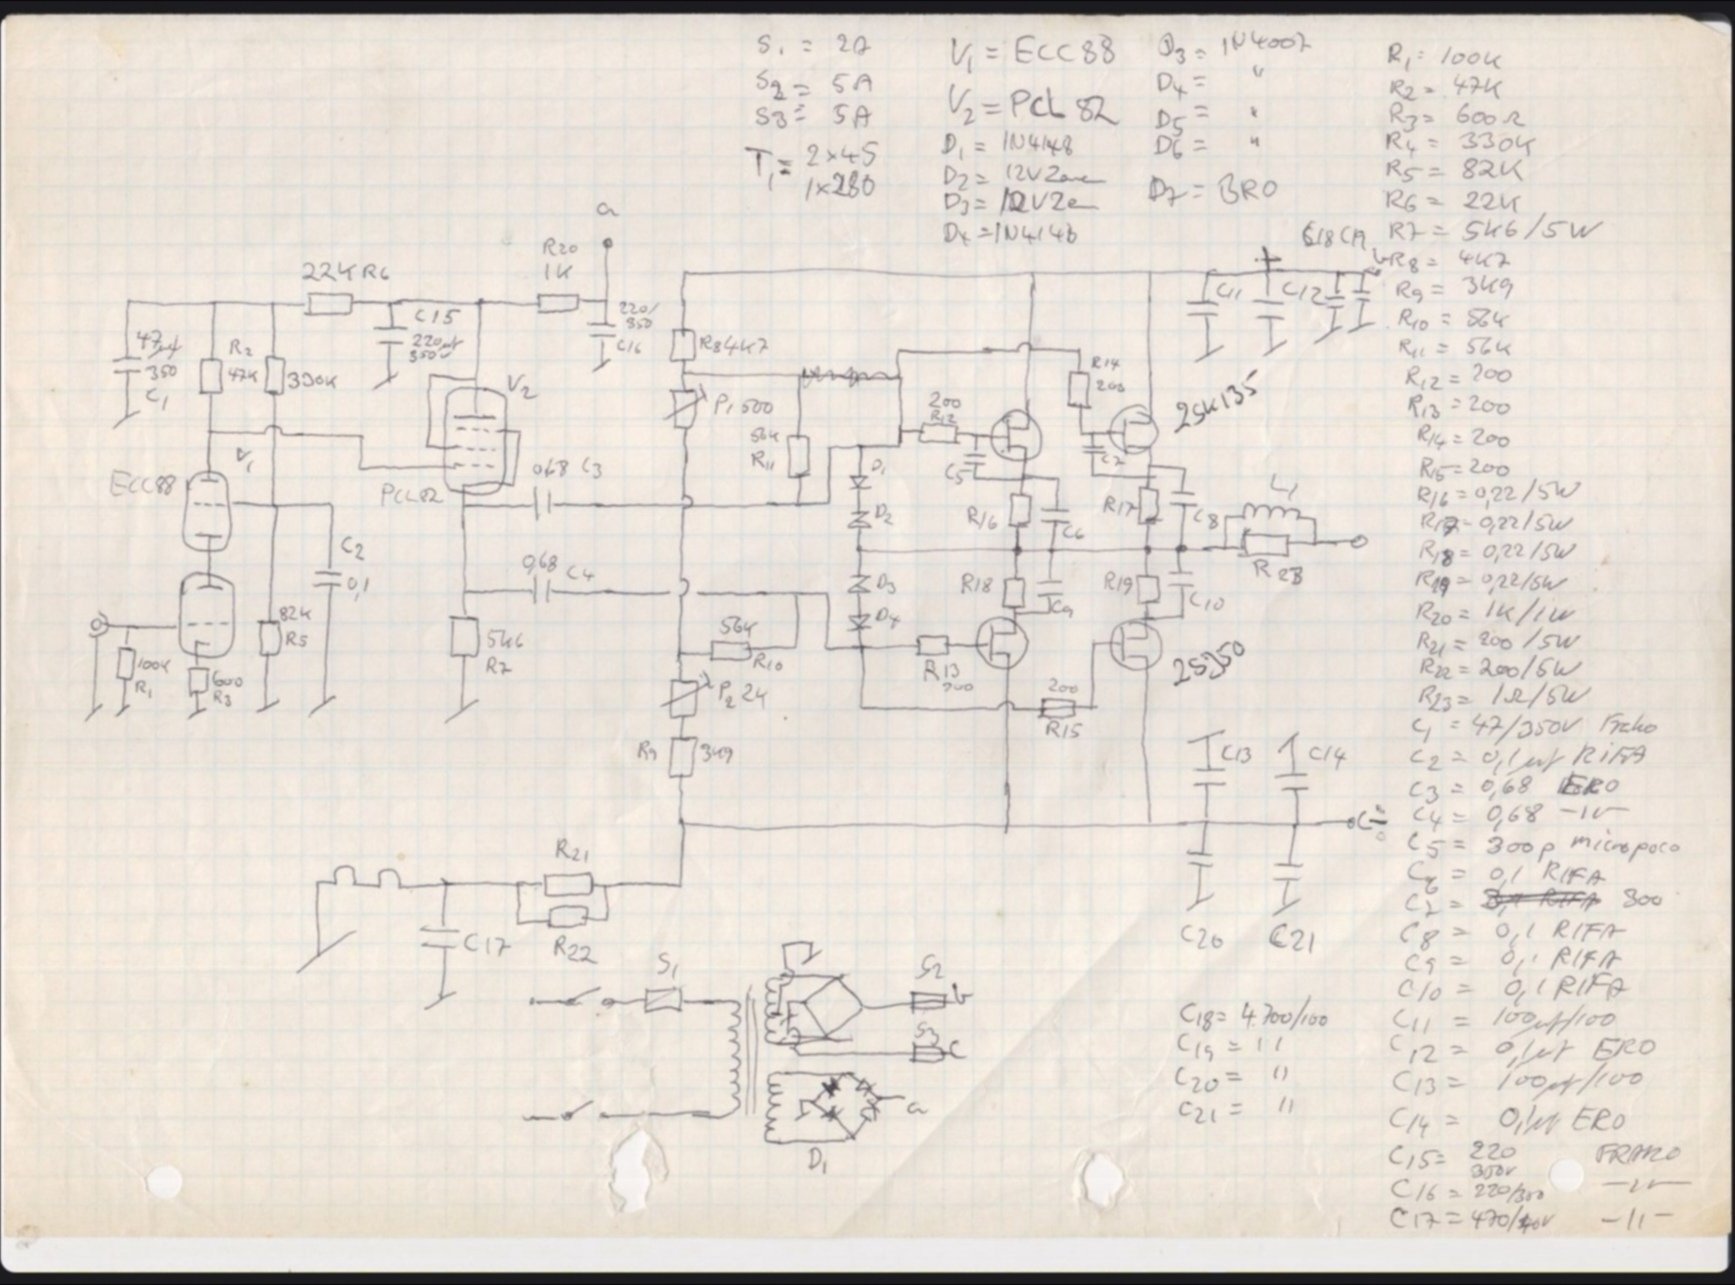 S1 = 2A
S2 = 5A
S3 = 5A
T1 = 2x45
1x280
V1 = ECC88
V2 = PCL 82
D1 = 1N4148
D2 = 12V Zener
D3 = 12V Zen
D4 = 1N4148
D3 = 1N4007
D4 = "
D5 = "
D6 = "
D7 = BRO
R1 = 100K
R2 = 47K
R3 = 600Ω
R4 = 330K
R5 = 82K
R6 = 22K
R7 = 5K6/5W
R8 = 4K7
R9 = 3K9
R10 = 56K
R11 = 56K
R12 = 200
R13 = 200
R14 = 200
R15 = 200
R16 = 0,22/5W
R17 = 0,22/5W
R18 = 0,22/5W
R19 = 0,22/5W
R20 = 1K/1W
R21 = 200/5W
R22 = 200/5W
R23 = 1Ω/5W
C1 = 47/350V Frako
C2 = 0,1µf RIFA
C3 = 0,68 ERO
C4 = 0,68 -11-
C5 = 300p micropoco
C6 = 0,1 RIFA
C7 = 300
C8 = 0,1 RIFA
C9 = 0,1 RIFA
C10 = 0,1 RIFA
C11 = 100µf/100
C12 = 0,1µf ERO
C13 = 100µf/100
C14 = 0,1µf ERO
C15 = 220 FRAKO
350V
C16 = 220/350 -11-
C17 = 470/40V -11-
C18 = 4.700/100
C19 = 11
C20 = 11
C21 = 11
a
R20
1K
22K R6
C15
220µf
350V
220/
350
C16
47µf
350
C1
R2
47K
330K
V1
ECC88
V2
PCL82
0,68 C3
0,68 C4
C2
0,1
82K
R5
100K
R1
600
R3
5K6
R7
R8 4K7
P1 500
56K
R11
56K
R10
P2 2K
R9 3K9
D1
D2
D3
D4
200
R12
C5
R14
200
C7
2SK135
R16
C6
R17
C8
L1
R23
R18
C9
R19
C10
R13
200
2SJ50
200
R15
C11
C12
C18 C19
+
b
C13
C14
C
C20
C21
R21
R22
C17
S1
S2
b
S3
C
a
D1